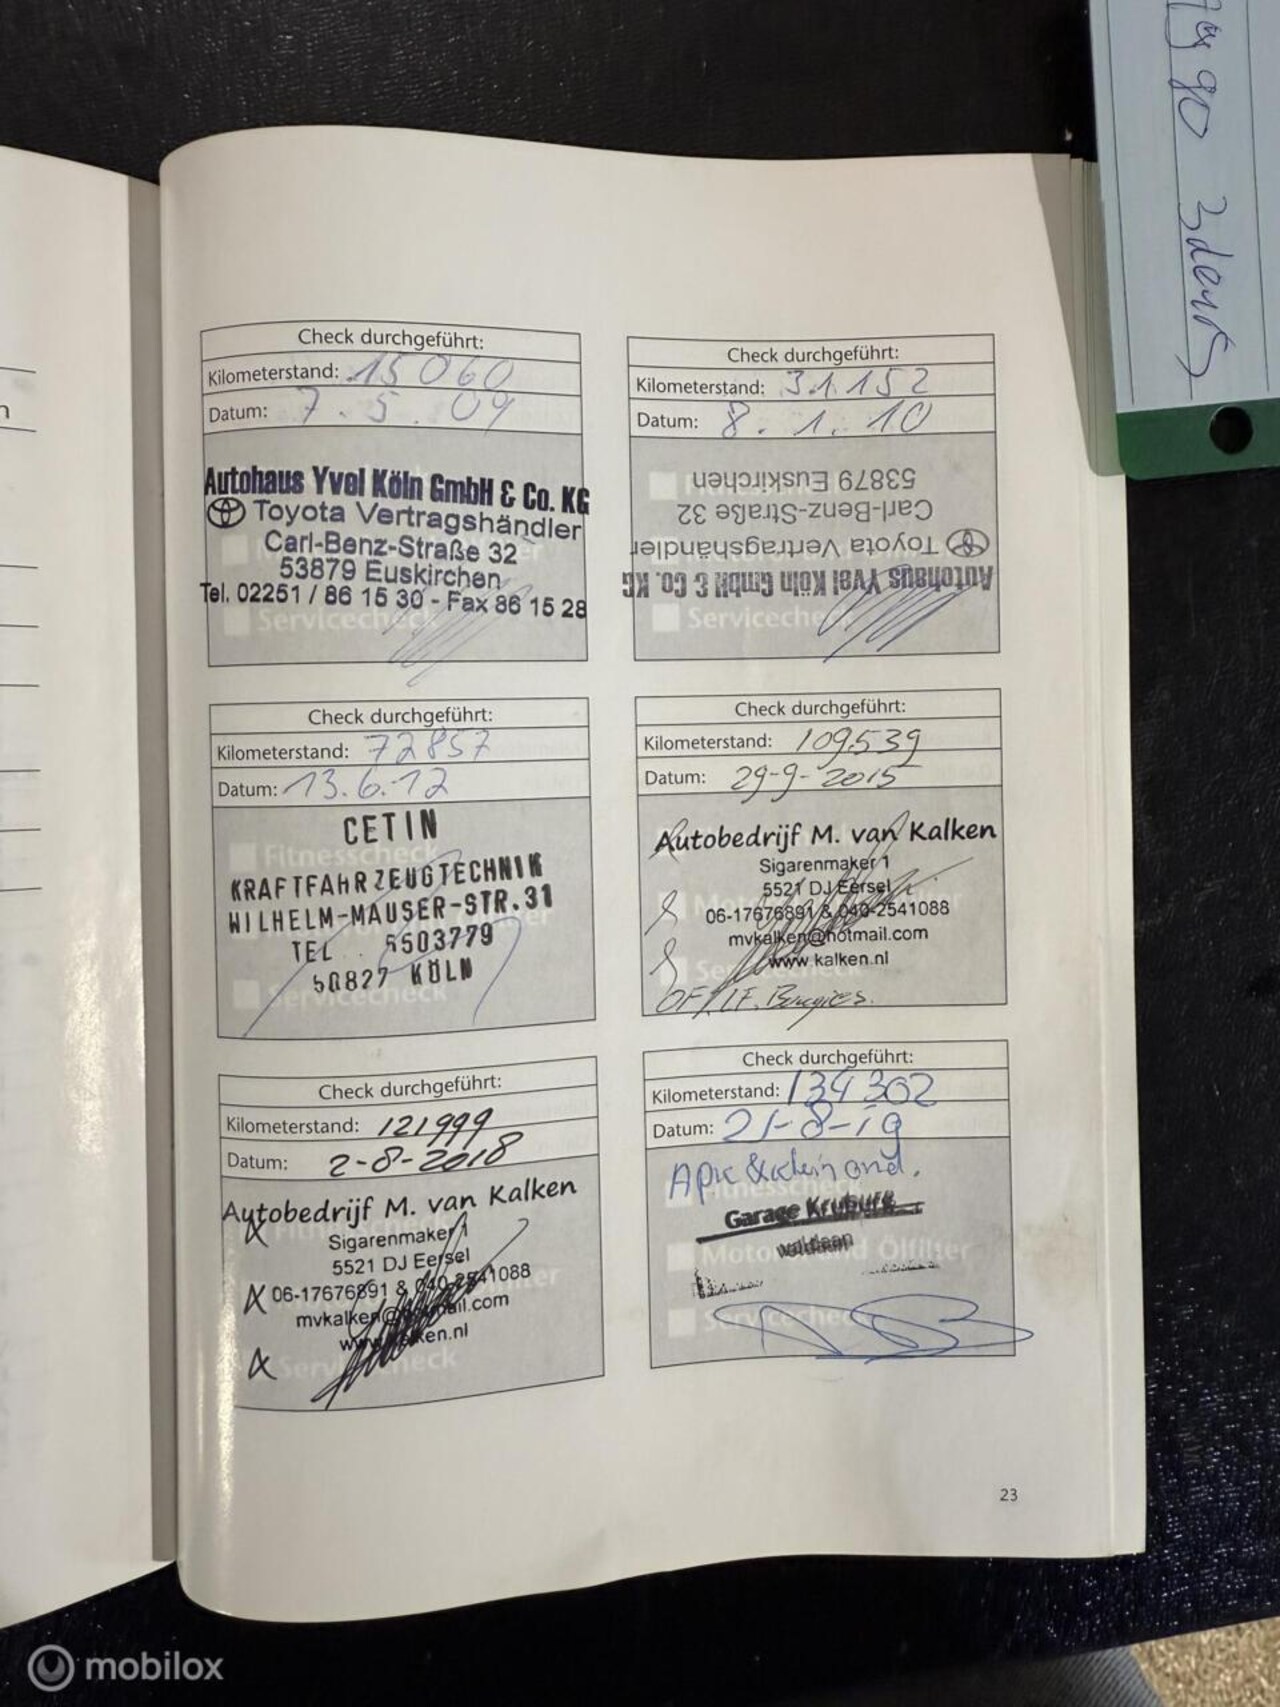 Check durchgeführt:
Kilometerstand: 15060
Datum: 7.5.09
Autohaus Yvel Köln GmbH & Co. KG
Toyota Vertragshändler
Carl-Benz-Straße 32
53879 Euskirchen
Tel. 02251 / 86 15 30 - Fax 86 15 28
Servicecheck
Check durchgeführt:
Kilometerstand: 31.152
Datum: 8.1.10
Autohaus Yvel Köln GmbH & Co. KG
Toyota Vertragshändler
Carl-Benz-Straße 32
53879 Euskirchen
Servicecheck
Check durchgeführt:
Kilometerstand: 72857
Datum: 13.6.12
CETIN
Fitnesscheck
KRAFTFAHRZEUGTECHNIK
WILHELM-MAUSER-STR.31
TEL. 5503779
50827 KÖLN
Servicecheck
Check durchgeführt:
Kilometerstand: 109.539
Datum: 29-9-2015
Autobedrijf M. van Kalken
Sigarenmaker 1
5521 DJ Eersel
06-17676891 & 040-2541088
mvkalken@hotmail.com
www.kalken.nl
Check durchgeführt:
Kilometerstand: 121999
Datum: 2-8-2018
Autobedrijf M. van Kalken
Sigarenmaker 1
5521 DJ Eersel
06-17676891 & 040-2541088
mvkalken@hotmail.com
www.kalken.nl
Servicecheck
Check durchgeführt:
Kilometerstand: 134302
Datum: 21-8-19
Apk & klein ond.
Fitnesscheck
Garage
Motoröl und Ölfilter
Servicecheck
23
3deurs
mobilox